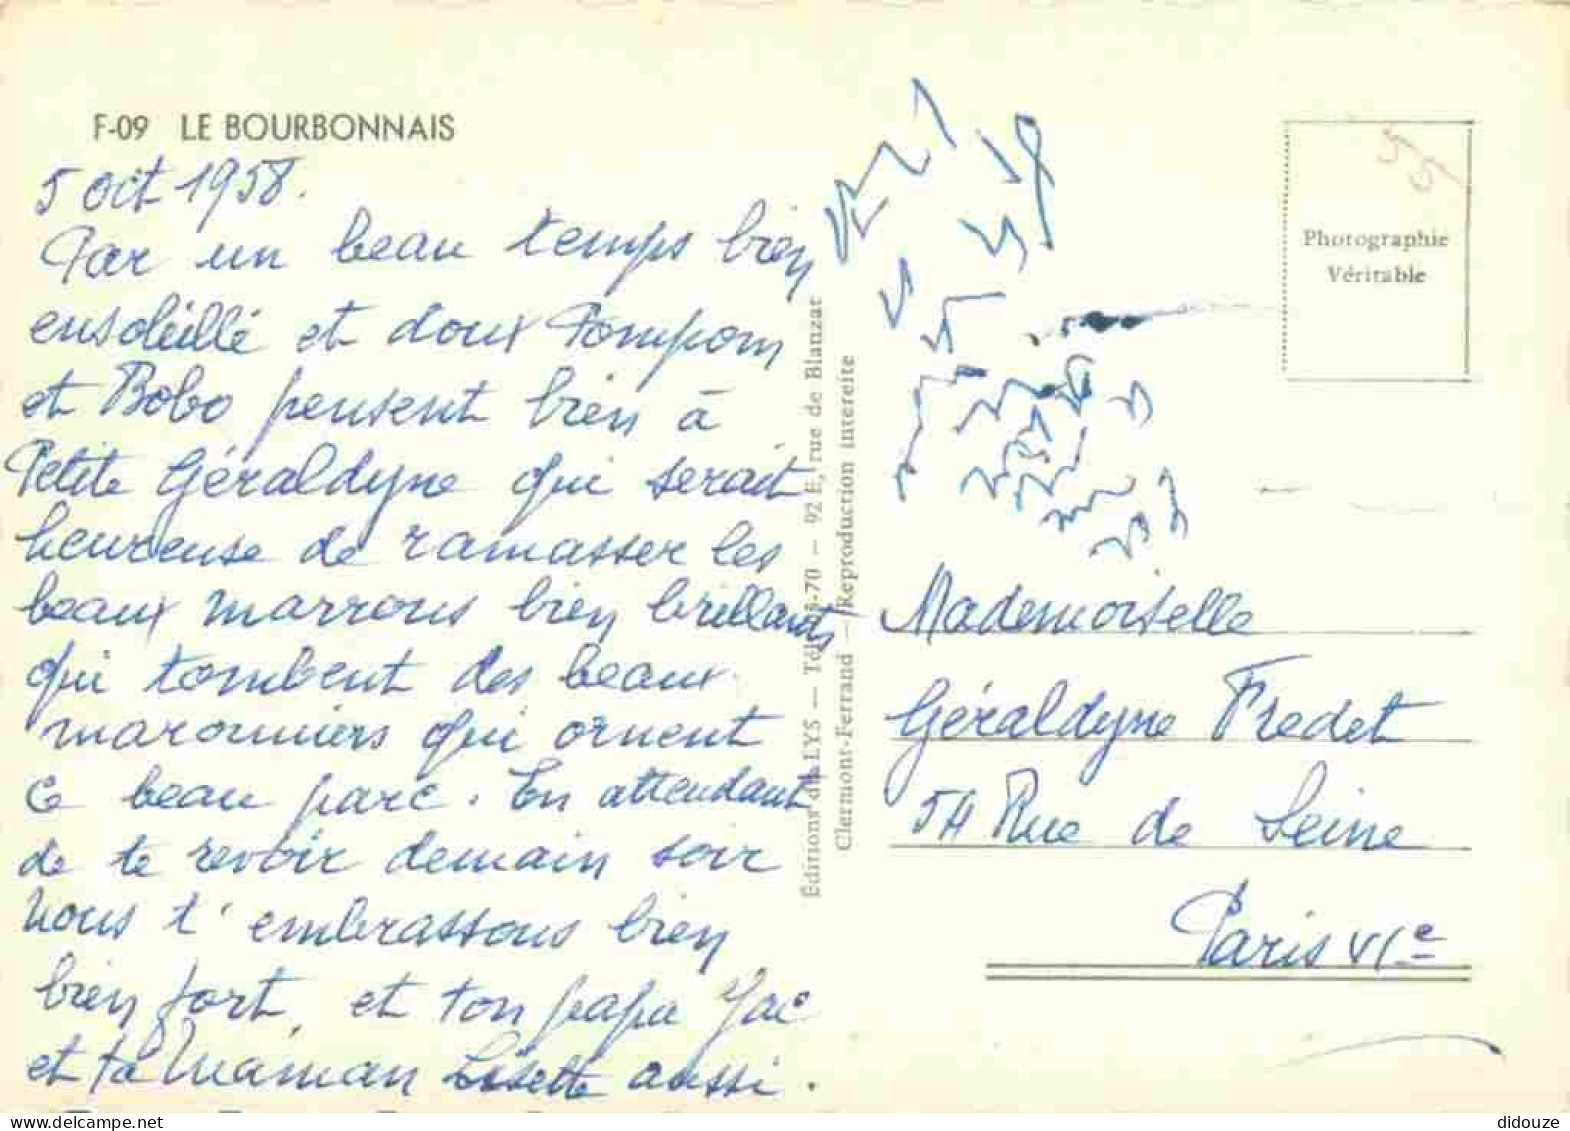 F-09 LE BOURBONNAIS
5 oct 1958.
Par un beau temps bien
ensoleillé et doux Pompom
et Bobo pensent bien à
Petite Géraldyne qui serait
heureuse de ramasser les
beaux marrons bien brillants
qui tombent des beaux
maronniers qui ornent
ce beau parc. En attendant
de te revoir demain soir
nous t'embrassons bien
bien fort, et ton papa Jac
et ta Maman Lisette aussi.
Éditions du LYS — 92 E, rue de Blanzat
Clermont-Ferrand — Reproduction interdite
55
Photographie
Véritable
Mademoiselle
Géraldyne Fredet
54 Rue de Seine
Paris VIe
didouze